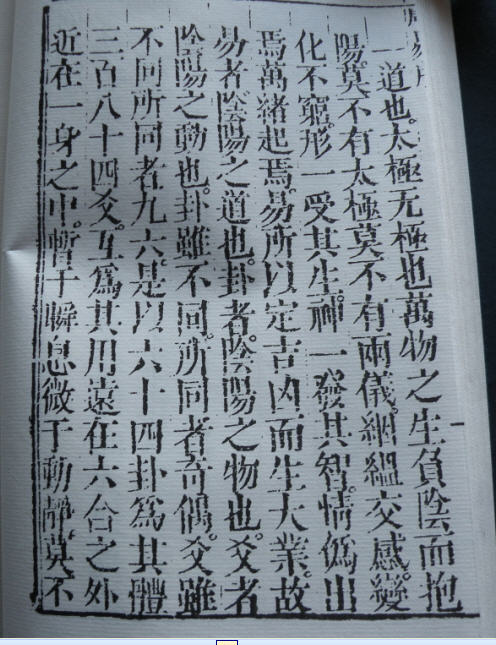 一道也太極无極也萬物之生負陰而抱
陽莫不有太極莫不有兩儀絪縕交感變
化不窮形一受其生神一發其智情僞出
焉萬緒起焉易所以定吉凶而生大業故
易者陰陽之道也卦者陰陽之物也爻者
陰陽之動也卦雖不同所同者奇偶爻雖
不同所同者九六是以六十四卦爲其體
三百八十四爻互爲其用遠在六合之外
近在一身之中暫于瞬息微于動靜莫不